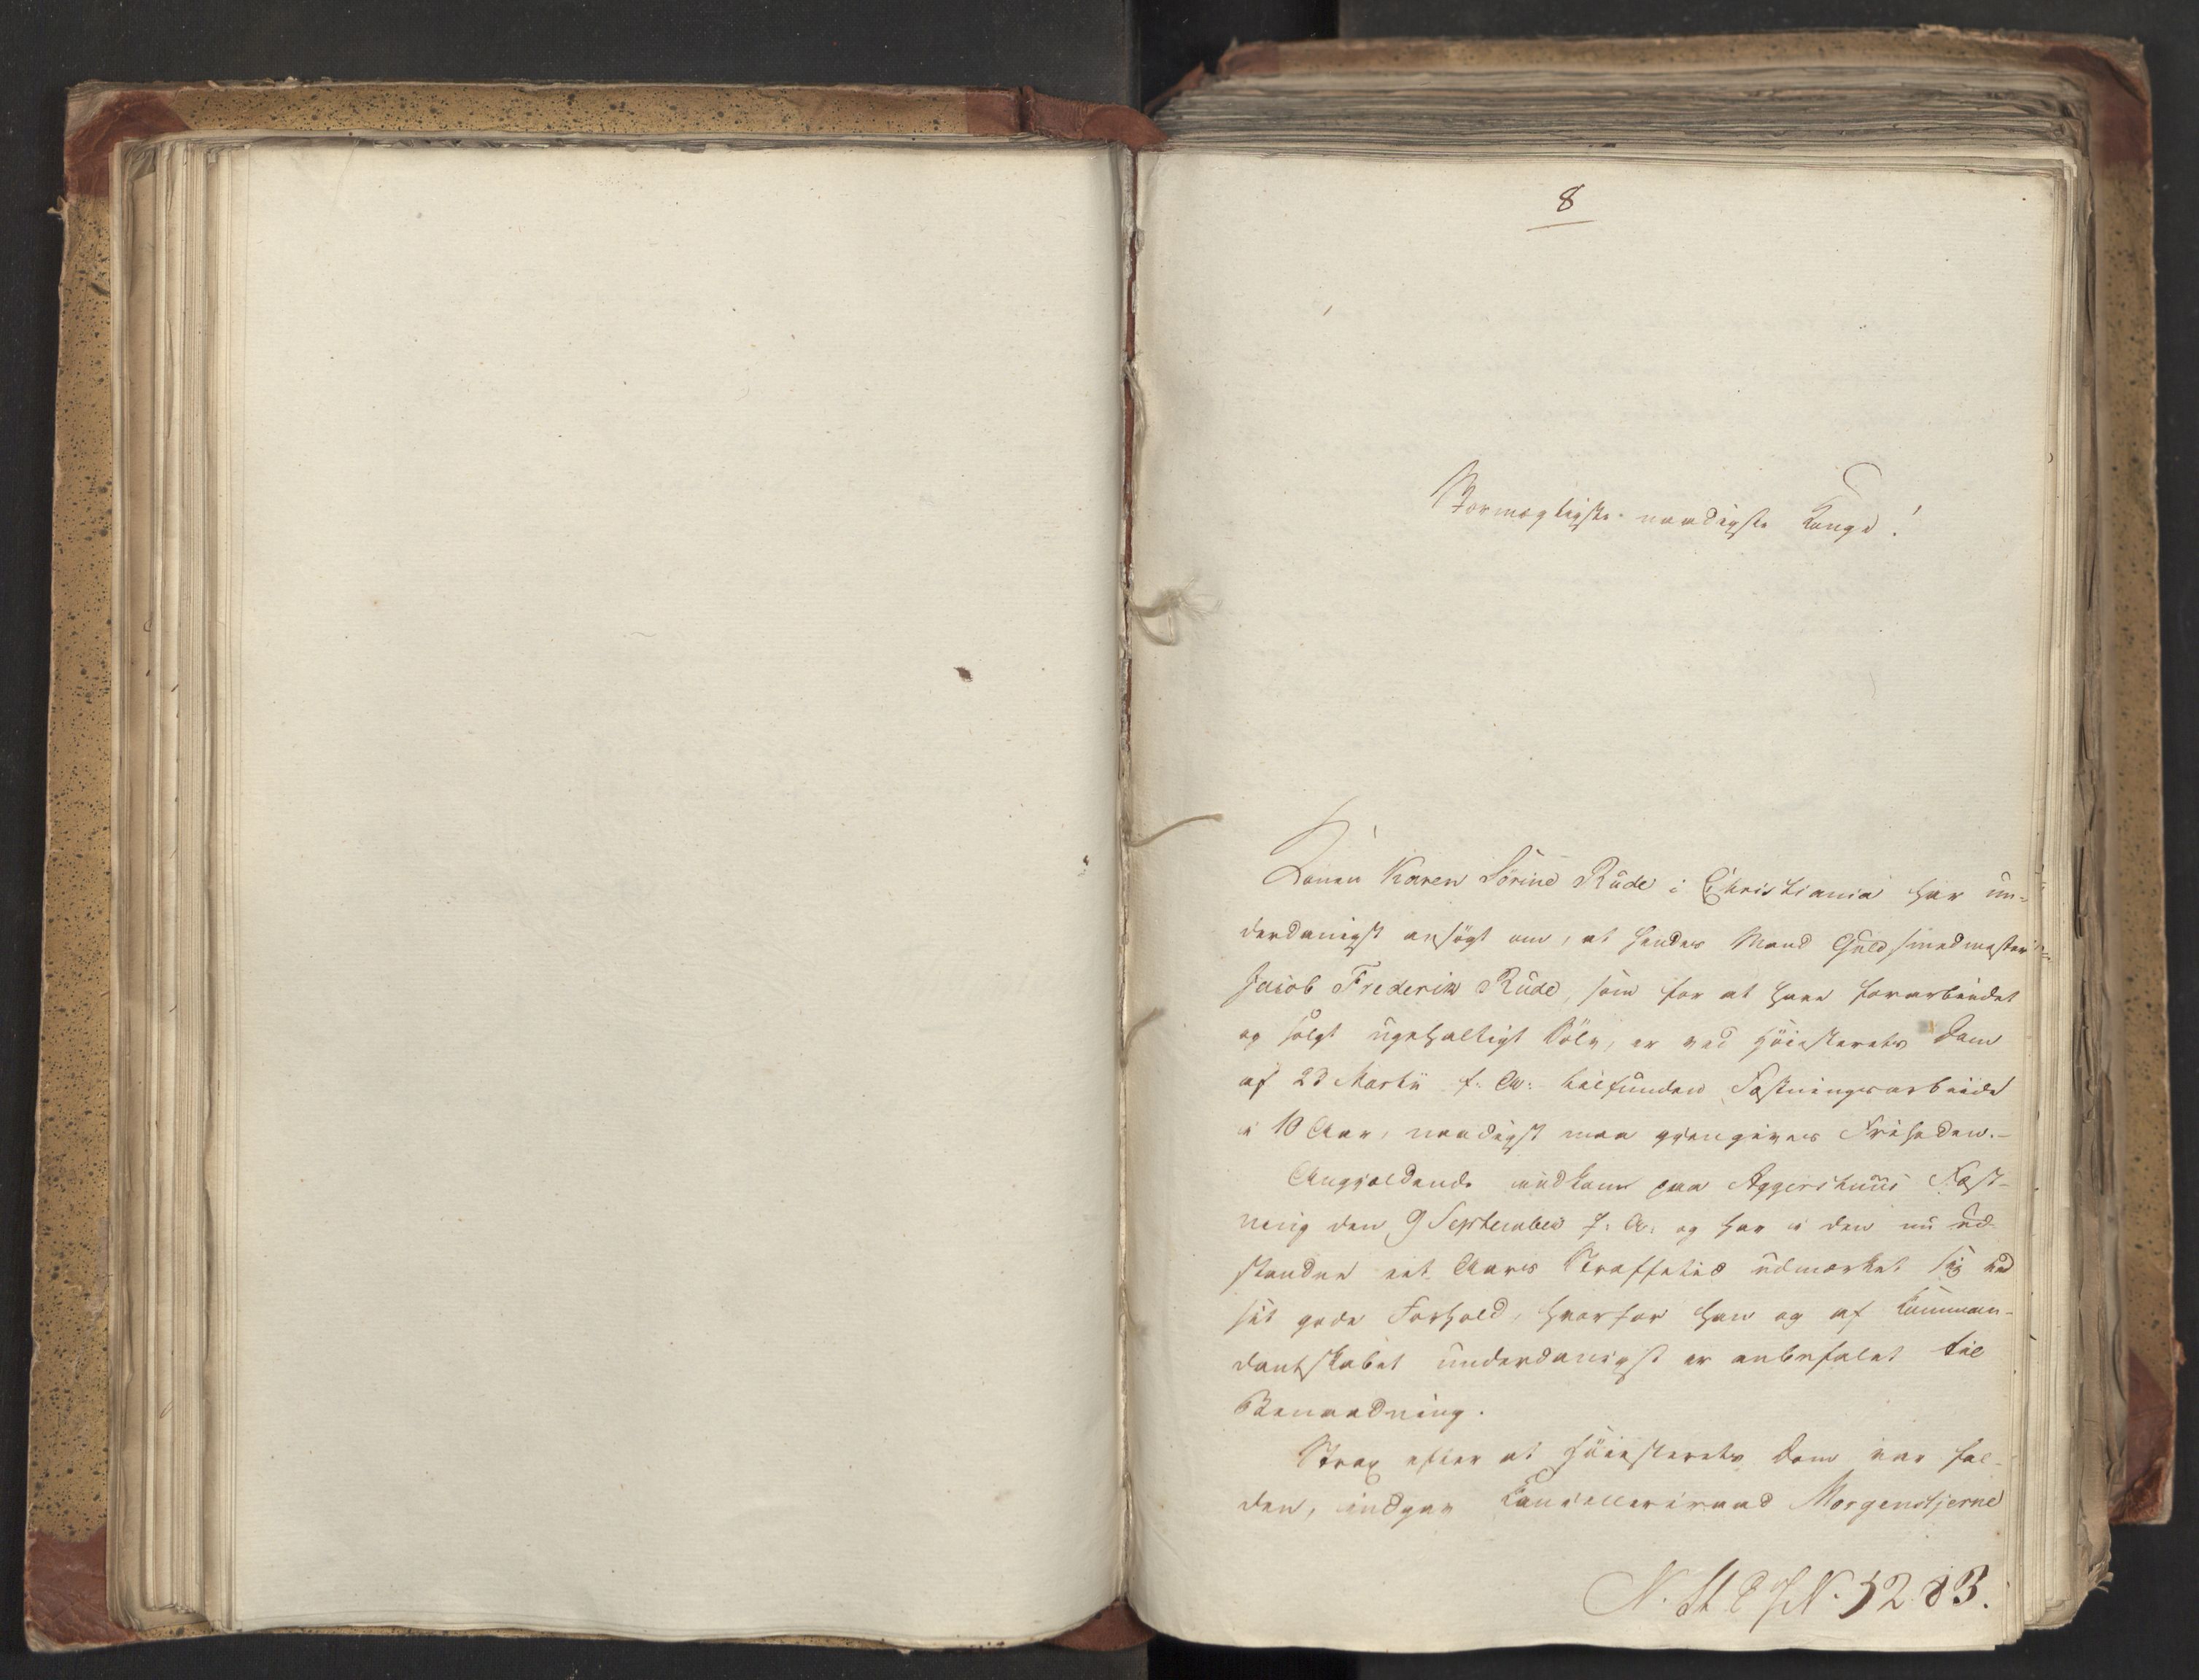 8
Stormægtigste naadigste Konge!
Konen Karen Sörine Rude i Christiania har un-
derdanigst ansögt om, at hendes Mand Guldsmedmester
Jacob Frederik Rude, som for at have forarbeidet
og solgt ugehaltigt Sölv, er ved Höiesterets Dom
af 23 Martii f. A. tilfunden Fæstningsarbeide
i 10 Aar, naadigst maa gjengives Friheden.-
Angjældende indkom paa Aggershuus Fæst-
ning den 9 September f. A. og har i den nu ud-
standne eet Aars Straffetid udmærket sig ved
sit gode Forhold, hvorfor han og af Comman-
dantskabet underdanigst er anbefalet til
Benaadning.
Strax efter at Höiesterets Dom var fal-
den, indgav Cancelleriraad Morgenstjerne
N. St. E. J. N. 5283.